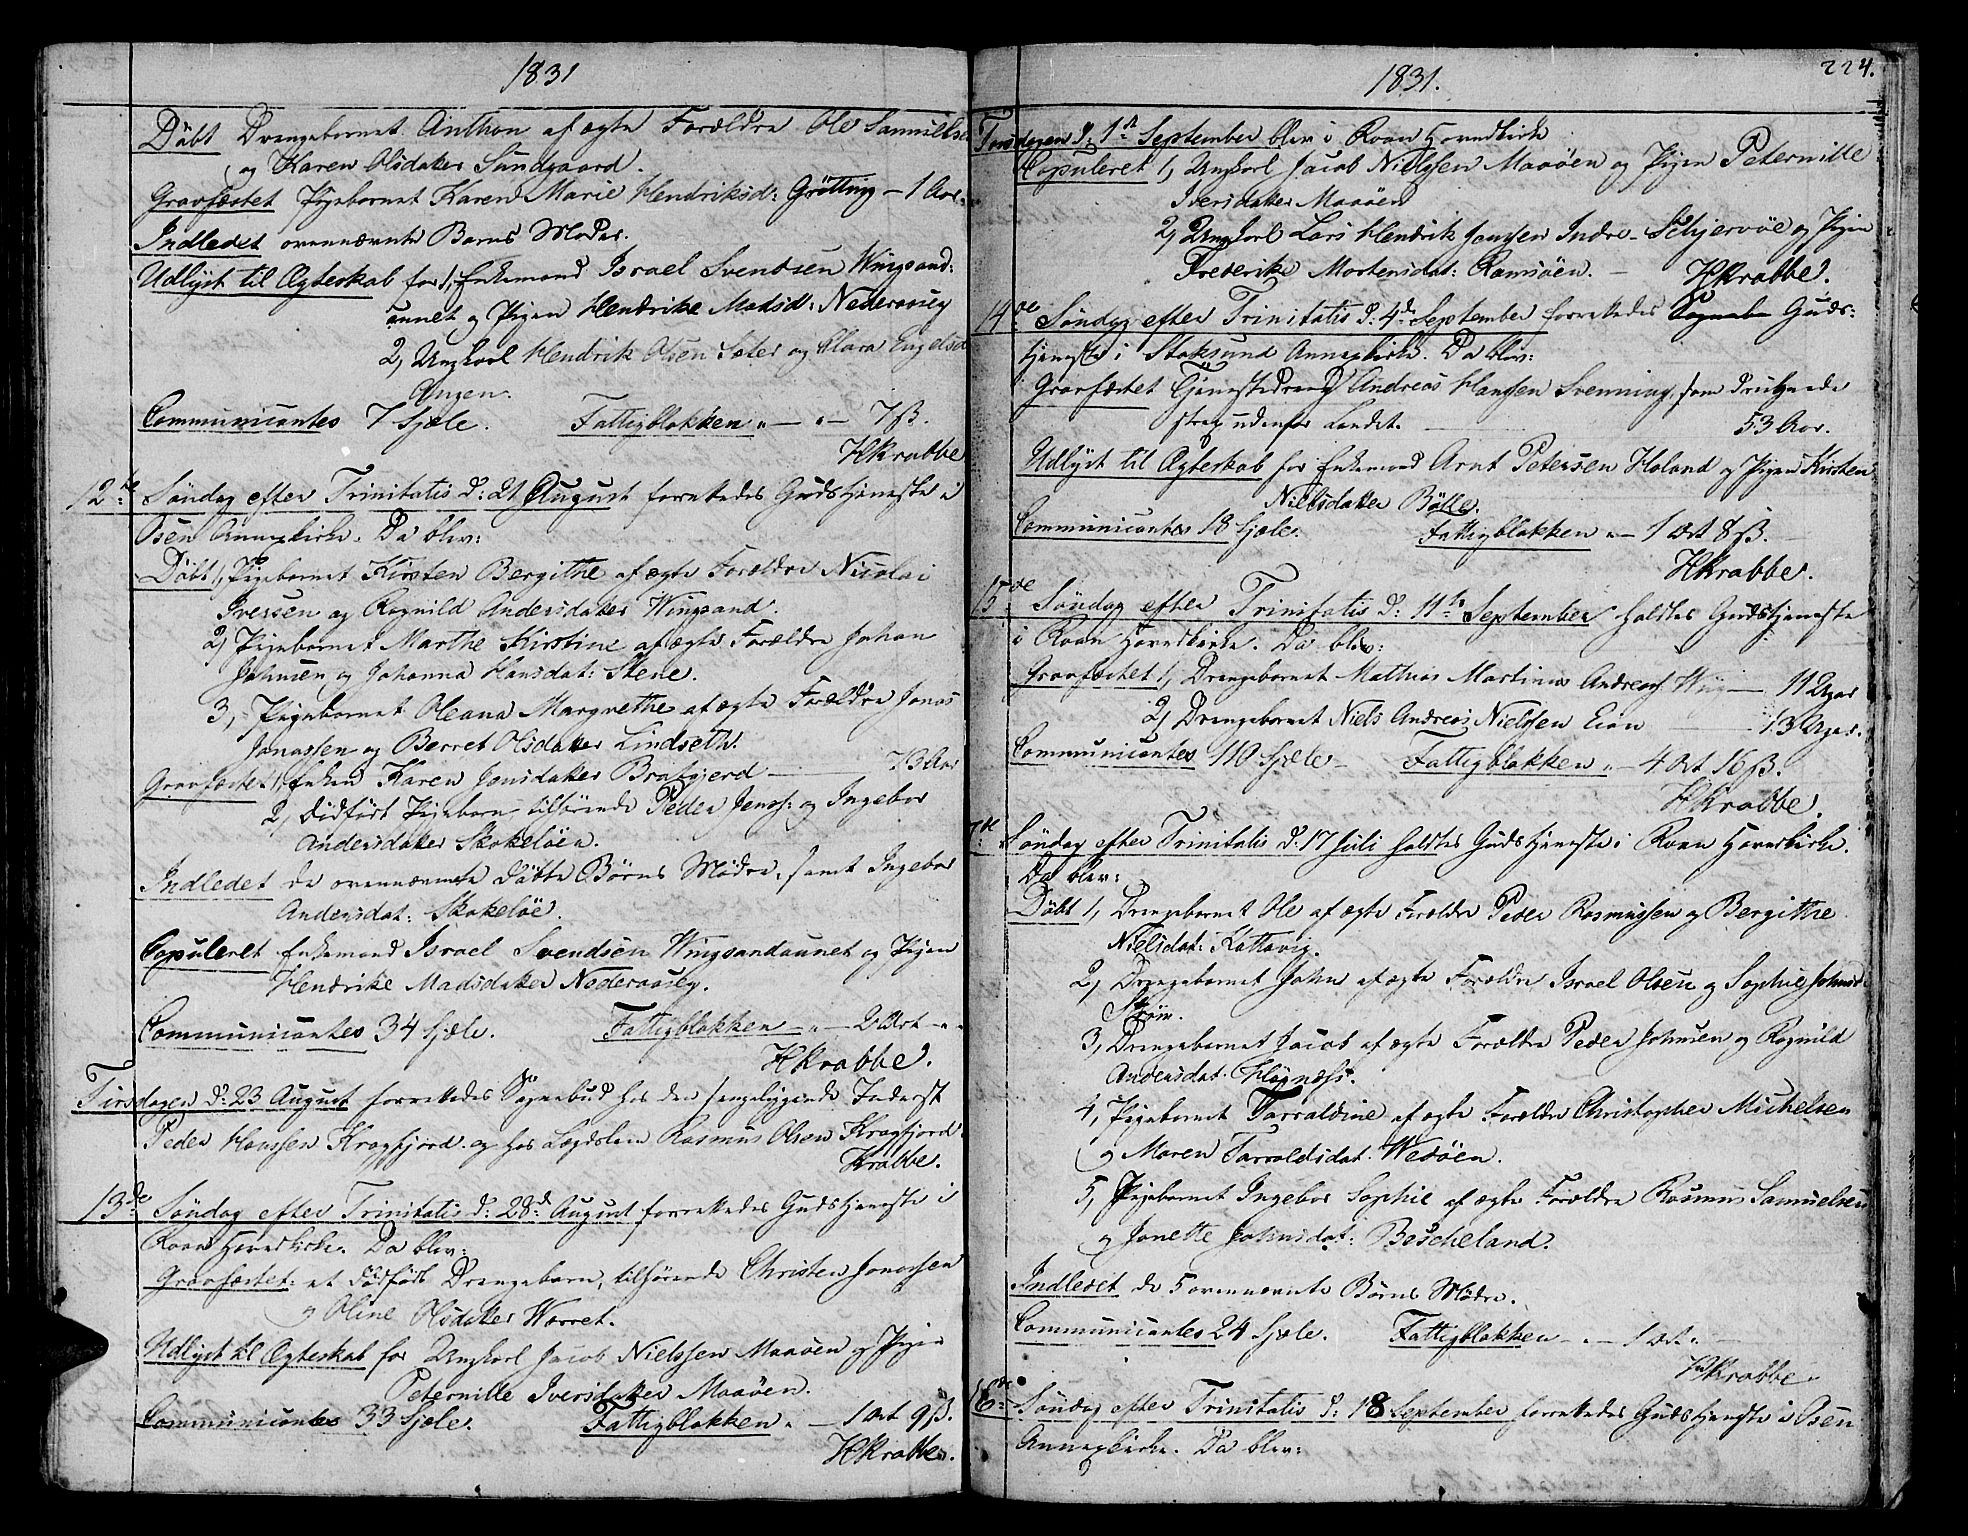 1831
Døbt Drengebarnet Anthon af ægte Forældre Ole Samuels
og Karen Olsdatter Sundgaard.
Gravfæstet Pigebarnet Karen Marie Hendriksd: Grøtting — 1 Aar
Indledet ovennævnte Barns Moder.
Udlyst til Ægteskab for 1, Enkemand Israel Svendsen Wingsand:
aunet og Pigen Hendrike Madsd: Nederaasey
2, Ungkarl Hendrik Olsen Sæter og Clara Engelsd
Angen.
Communicantes 7 Sjæle. Fattigblokken „ — „ — 7 ß.
HKrabbe
12te Søndag efter Trinitatis d: 21 August forrettedes Gudstjeneste i
Osen Annexkirke. Da blev:
Døbt 1, Pigebarnet Kirsten Bergithe af ægte Forældre Nicolai
Iversen og Ragnild Andersdatter Wingsand.
2, Pigebarnet Marthe Kirstine af ægte Forældre Johan
Johnsen og Johanna Hansdat: Stene.
3, Pigebarnet Oleana Margrethe af ægte Forældre Jonas
Jonassen og Berret Olsdatter Lindseth.
Gravfæstet 1, Enken Karen Jonsdatter Bratgjerd — 73 Aar
2, dødfødt Pigebarn tilhørende Peder Jenss: og Ingebor
Andersdatter Skakeløen.
Indledet de ovennævnte døbte Børns Mødre, samt Ingebor
Andersdat: Skakeløe.
Copuleret Enkemand Israel Svendsen Wingsandaunet og Pigen
Hendrike Madsdatter Nederaasey.
Communicantes 34 Sjæle. Fattigblokken — „ — 2 Ort — „
HKrabbe.
Tirsdagen d: 23 August forrettedes Sognebud hos den sengeliggende Inderst
Peder Hanssen Kragfjord og hos Lægdslem Rasmus Olsen Kragfjord.
Krabbe.
13de Søndag efter Trinitatis d: 28d August forrettedes Gudstjeneste i
Roan Hovedkirke. Da blev:
Gravfæstet: et dødfødt Drengebarn, tilhørende Christen Jonassen
og Oline Olsdatter Warret.
Udlyst til Ægteskab for Ungkarl Jacob Nielssen Maaøen og Pigen
Peternille Iversdatter Maaøen.
Communicantes 33 Sjæle. Fattigblokken „ — 1 Ort 9 ß.
HKrabbe.
1831. 224.
Torsdagen d: 1st September blev i Roan Hovedkirke
Copuleret 1, Ungkarl Jacob Nielssen Maaøen og Pigen Peternille
Iversdatter Maaøen
2, Ungkarl Lars Hendrik Janssen Indre-Schjervøe og Pigen
Frederike Mortensdat: Ramsøen. — HKrabbe.
14de Søndag efter Trinitatis d: 4de September forrettedes Guds:
tjeneste i Stoksund Annexkirke. Da blev:
Gravfæstet Tjenestedreng Andreas Hanssen Svenning, som druknede
strax udenfor Landet. — 53 Aar.
Udlyst til Ægteskab for Enkemand Arnt Petersen Haland og Pigen Kirsten
Nielsdatter Bølle.
Communicantes 18 Sjæle. Fattigblokken „ — 1 Ort 8 ß.
HKrabbe.
15de Søndag efter Trinitatis d: 11te September holdtes Gudstjeneste
i Roan Hovedkirke. Da blev:
Gravfæstet 1, Drengebarnet Mathias Martinus Andreas Wiig — 11 Uger
2, Drengebarnet Niels Andreas Nielssen Eian — 13 Uger.
Communicantes 110 Sjæle — Fattigblokken „ — 4 Ort 16 ß.
HKrabbe.
7de Søndag efter Trinitatis d: 17 Juli holdtes Gudstjeneste i Roan Hovedkirke.
Da blev:
Døbt 1, Drengebarnet Ole af ægte Forældre Peder Rasmussen og Bergithe
Nielsdat: Kattavig.
2, Drengebarnet John af ægte Forældre Israel Olsen og Sophie Johnsd
Strøm.
3, Drengebarnet Jacob af ægte Forældre Peder Johnsen og Ragnild
Andersdat: Hognæss.
4, Pigebarnet Tarraldine af ægte Forældre Christopher Michelsen
og Maren Tarraldsdat. Wesøen.
5, Pigebarnet Ingebor Sophie af ægte Forældre Rasmus Samuelsen
og Janette Johnsdat: Bescheland.
Indledet de 5 ovennævnte Børns Mødre.
Communicantes 24 Sjæle. Fattigblokken — „ — 1 Ort „
HKrabbe.
16de Søndag efter Trinitatis d: 18 September forrettedes Gudstjeneste i Osen
Annexkirke. Da blev: